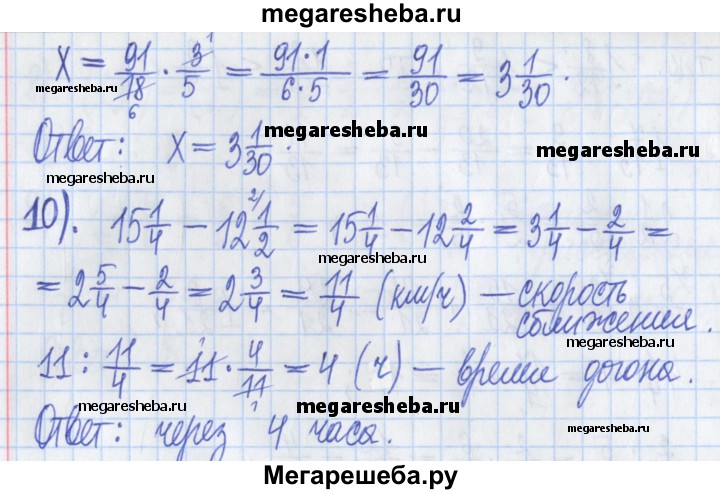 megaresheba.ru
X = 91/18 · 3/5 = 91·1/6·5 = 91/30 = 3 1/30.
megaresheba.ru megaresheba.ru
6 1
Ответ: X = 3 1/30.
megaresheba.ru megaresheba.ru
megaresheba.ru
10). 15 1/4 − 12 1/2 = 15 1/4 − 12 2/4 = 3 1/4 − 2/4 =
megaresheba.ru megaresheba.ru
= 2 5/4 − 2/4 = 2 3/4 = 11/4 (км/ч) — скорость
сближения.
megaresheba.ru
11 : 11/4 = 11 · 4/11 = 4 (ч) — время догона.
megaresheba.ru megaresheba.ru
Ответ: через 4 часа.
megaresheba.ru
Мегарешеба.ру